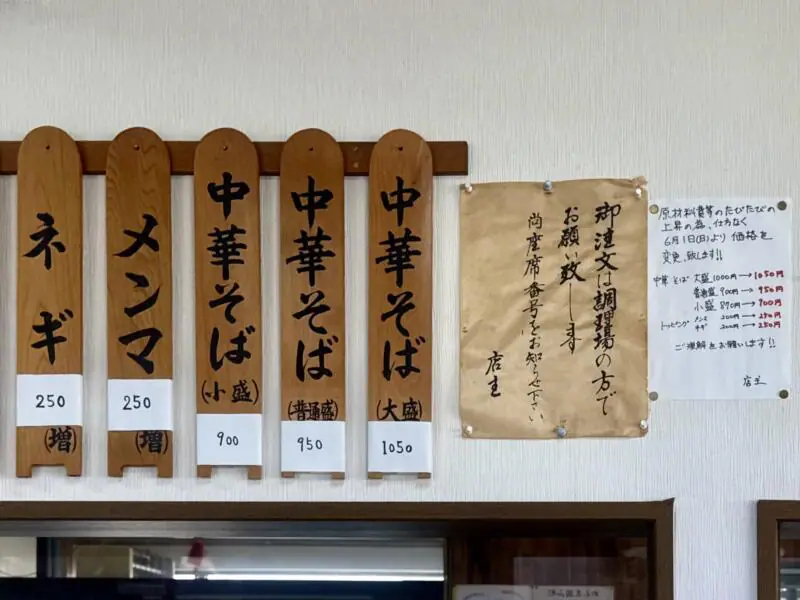 原材料費等のたびたびの
上昇の為、仕方なく
6月1日(日)より 価格を
変更、致します!!
中華そば 大盛 1000円→1050円
普通盛 900円→950円
小盛 →900円
トッピング メンマ 200円→250円
ネギ 200円→250円
ご理解をお願いします!!
店主
御注文は調理場の方で
お願い致します
尚座席番号をお知らせ下さい
店主
中華そば
(大盛)
1050
中華そば
(普通盛)
950
中華そば
(小盛)
900
メンマ
250
(増)
ネギ
250
(増)